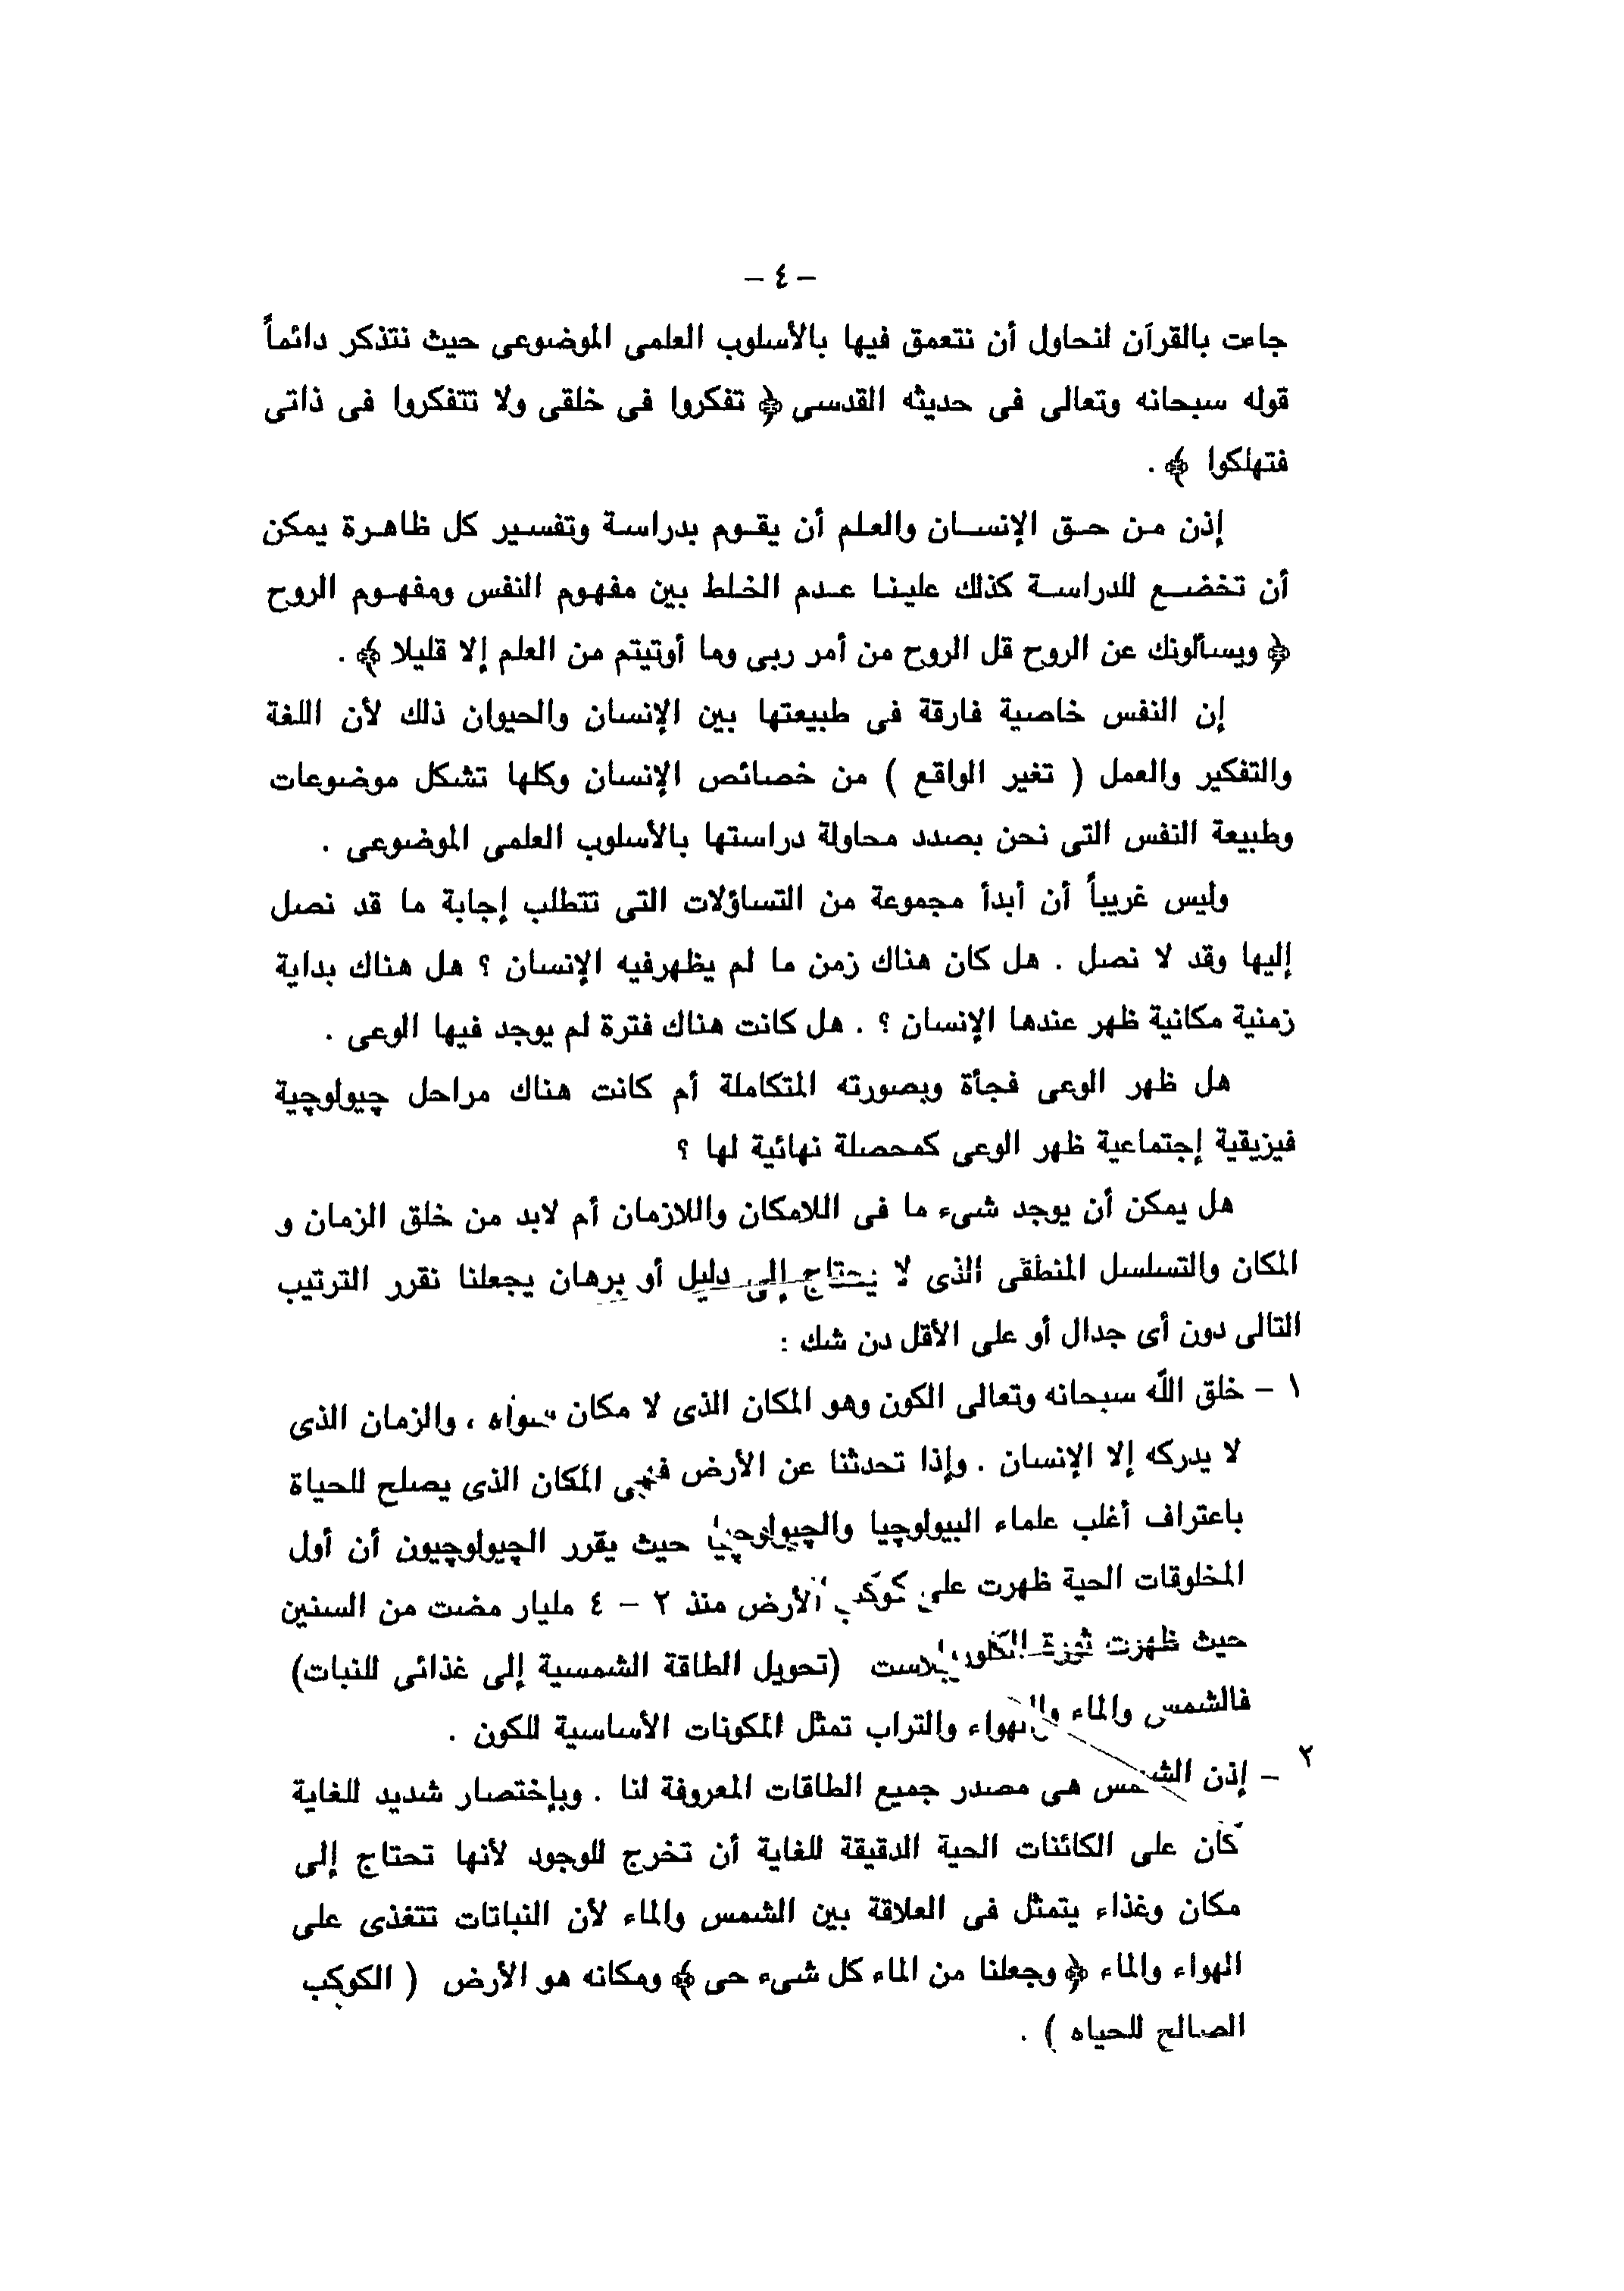 - ٤ -
جاءت بالقرآن لنحاول أن نتعمق فيها بالأسلوب العلمى الموضوعى حيث نتذكر دائماً
قوله سبحانه وتعالى فى حديثه القدسى ﴿ تفكروا فى خلقى ولا تتفكروا فى ذاتى
فتهلكوا ﴾ .
إذن من حق الإنسان والعلم أن يقوم بدراسة وتفسير كل ظاهرة يمكن
أن تخضع للدراسة كذلك علينا عدم الخلط بين مفهوم النفس ومفهوم الروح
﴿ ويسألونك عن الروح قل الروح من أمر ربى وما أوتيتم من العلم إلا قليلا ﴾ .
إن النفس خاصية فارقة فى طبيعتها بين الإنسان والحيوان ذلك لأن اللغة
والتفكير والعمل ( تغير الواقع ) من خصائص الإنسان وكلها تشكل موضوعات
وطبيعة النفس التى نحن بصدد محاولة دراستها بالأسلوب العلمى الموضوعى .
وليس غريباً أن أبدأ مجموعة من التساؤلات التى تتطلب إجابة ما قد نصل
إليها وقد لا نصل . هل كان هناك زمن ما لم يظهرفيه الإنسان ؟ هل هناك بداية
زمنية مكانية ظهر عندها الإنسان ؟ . هل كانت هناك فترة لم يوجد فيها الوعى .
هل ظهر الوعى فجأة وبصورته المتكاملة أم كانت هناك مراحل چيولوچية
فيزيقية إجتماعية ظهر الوعى كمحصلة نهائية لها ؟
هل يمكن أن يوجد شىء ما فى اللامكان واللازمان أم لابد من خلق الزمان و
المكان والتسلسل المنطقى الذى لا يحتاج إلى دليل أو برهان يجعلنا نقرر الترتيب
التالى دون أى جدال أو على الأقل دن شك :
١ - خلق الله سبحانه وتعالى الكون وهو المكان الذى لا مكان سواه ، والزمان الذى
لا يدركه إلا الإنسان . وإذا تحدثنا عن الأرض فهى المكان الذى يصلح للحياة
باعتراف أغلب علماء البيولوچيا والچيولوچيا حيث يقرر الچيولوچيون أن أول
المخلوقات الحية ظهرت على كوكب الأرض منذ ٢ - ٤ مليار مضت من السنين
حيث ظهرت ثورة الكلوروبلاست (تحويل الطاقة الشمسية إلى غذائى للنبات)
فالشمس والماء والهواء والتراب تمثل المكونات الأساسية للكون .
٢ - إذن الشمس هى مصدر جميع الطاقات المعروفة لنا . وبإختصار شديد للغاية
كان على الكائنات الحية الدقيقة للغاية أن تخرج للوجود لأنها تحتاج إلى
مكان وغذاء يتمثل فى العلاقة بين الشمس والماء لأن النباتات تتغذى على
الهواء والماء ﴿ وجعلنا من الماء كل شىء حى ﴾ ومكانه هو الأرض ( الكوكب
الصالح للحياه ) .